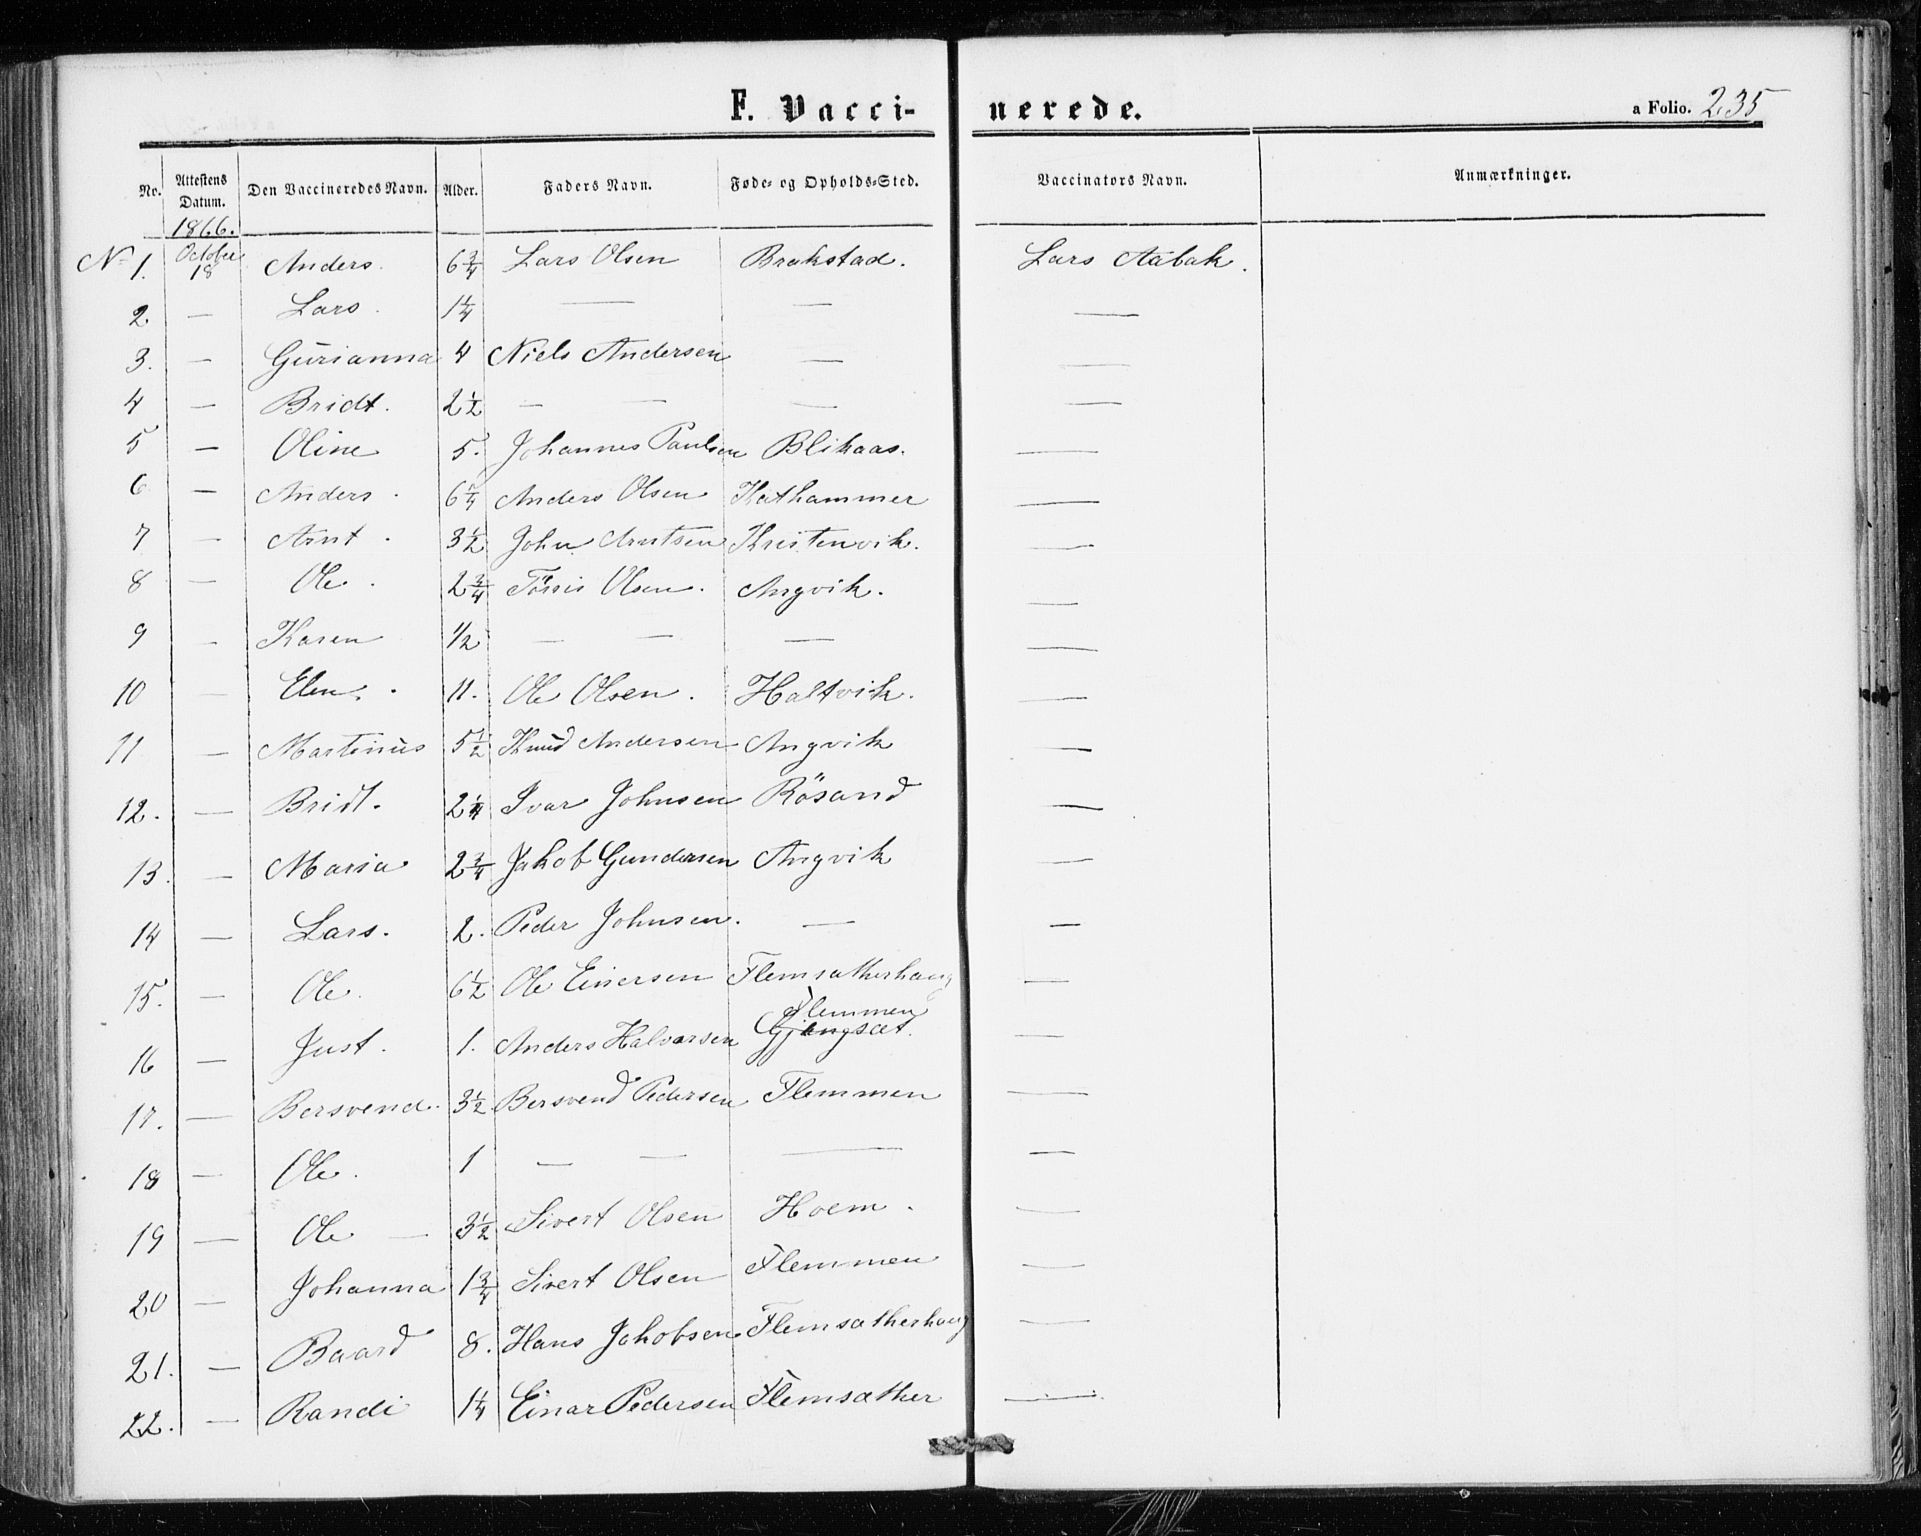 F. Vaccinerede. a Folio. 235
No. Attestens Datum. Den Vaccineredes Navn. Alder. Faders Navn. Føde- og Opholds-Sted. Vaccinators Navn. Anmærkninger.
1866.
No 1. October 18 Anders. 6 3/4 Lars Olsen Brakstad. Lars Aabak.
2. — Lars. 1 1/4 — — —
3. — Gurianna 4 Niels Andersen — —
4 — Bridt. 2 1/2 — — — —
5 — Oline 5. Johannes Paulsen Blikaas. —
6 — Anders. 6 1/4 Anders Olsen Kathammer —
7 — Arnt. 3 1/2 John Arntsen Kristenvik. —
8 — Ole. 2 3/4 Olsen. Angvik. —
9 — Karen 1/2 — — — —
10 — Elen. 11. Ole Olsen. Haltvik. —
11 — Martinus 5 1/2 Knud Andersen Angvik —
12. — Bridt. 2 1/4 Ivar Johnsen Rösand —
13. — Maria 2 3/4 Jakob Gundersen Angvik —
14 — Lars. 2. Peder Johnsen. — —
15. — Ole. 6 1/2 Ole Einersen Flemsætherhaug —
Flemmen
16 — Just. 1. Anders Halvorsen Gjengsæt. —
17. — Bersvend. 3 1/2 Bersvend Pedersen Flemmen —
18 — Ole. 1 — — — —
19 — Ole — 3 1/2 Sivert Olsen Hoem. —
20 — Johanna 1 3/4 Sivert Olsen Flemmen —
21. — Baard 8. Hans Jakobsen Flemsætherhaug —
22. — Randi 1 1/4 Einar Pedersen Flemsæther —